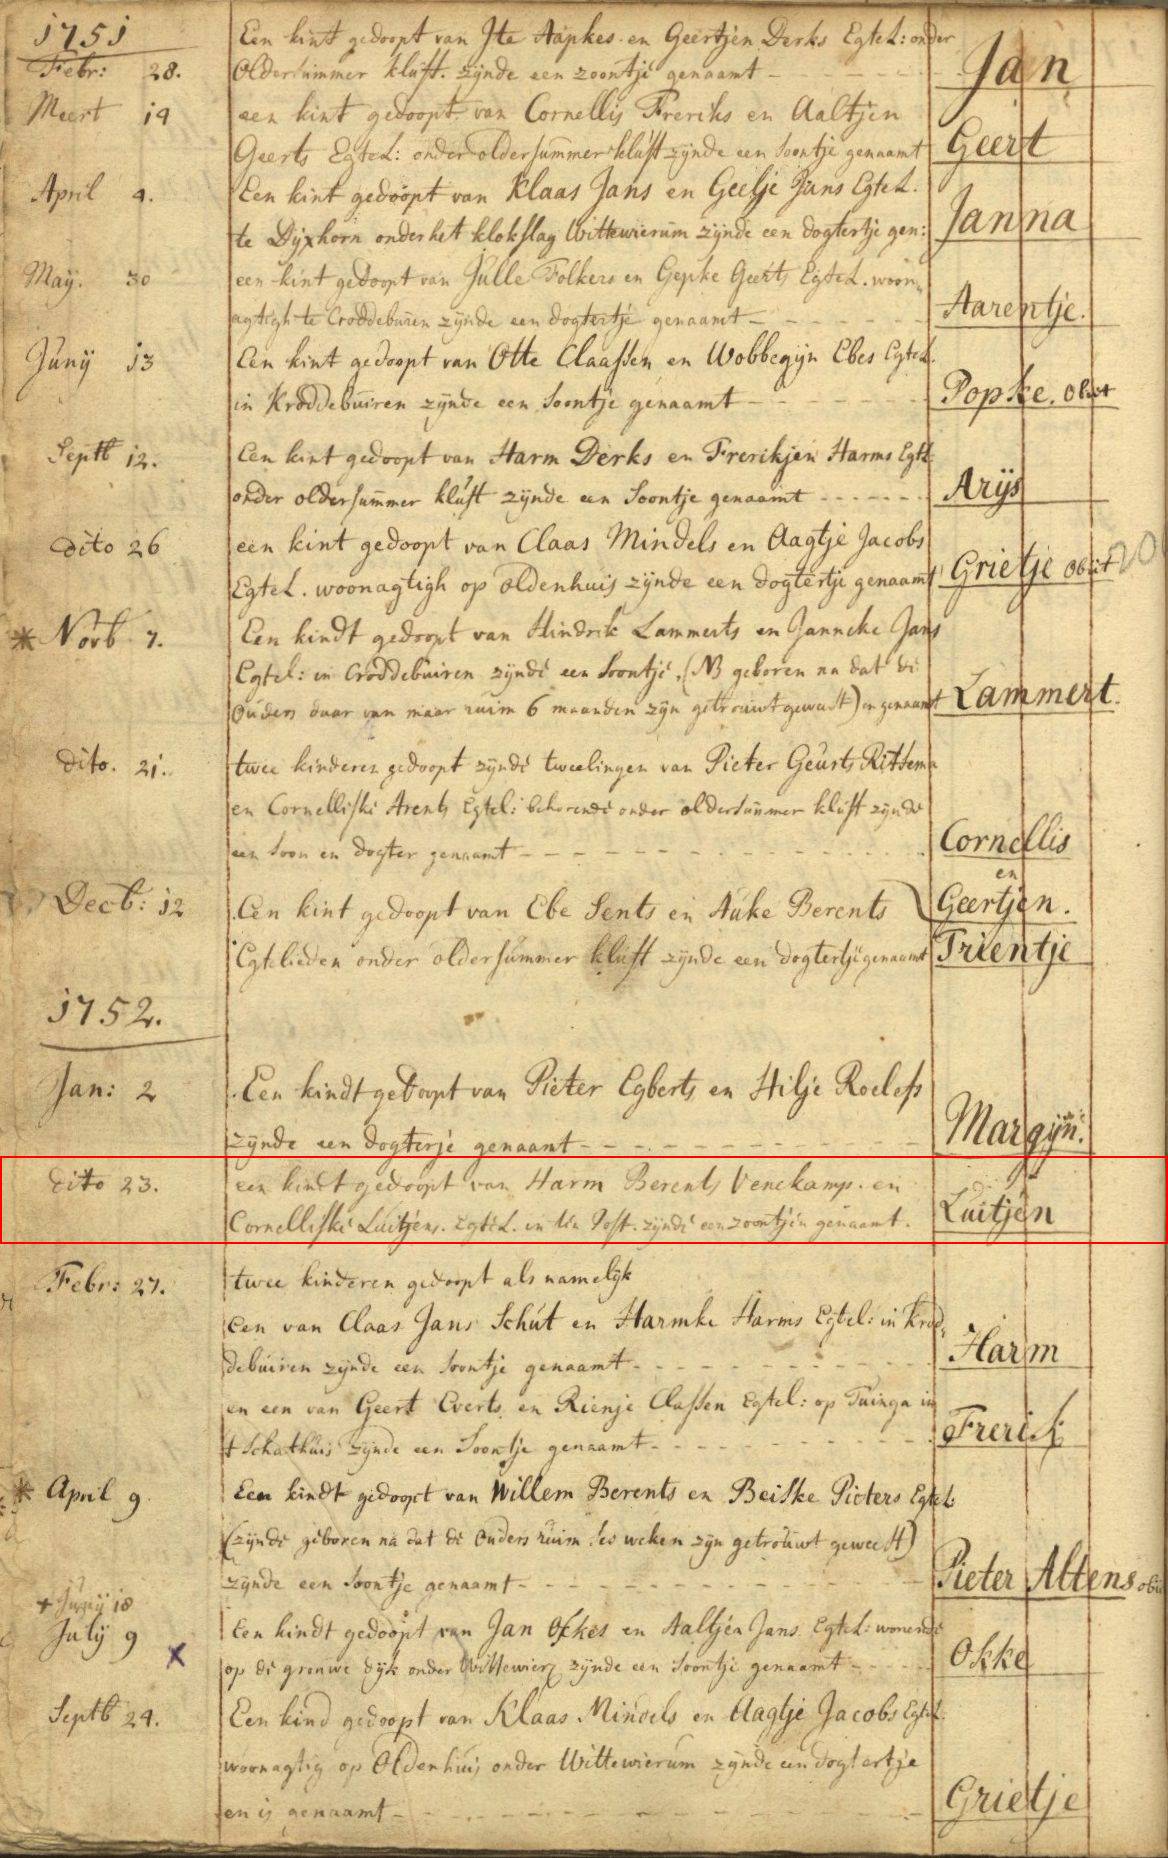 1751
Een kint gedoopt van Jte Aapkes en Geertjen Derks Egtel: onder
Febr: 28. Oldersummer kluft. zynde een zoontje genaamt - Jan
Meert 14 een kint gedoopt van Cornellis Freriks en Aaltjen
Geerts Egtel: onder oldersummer kluft zynde een soontje genaamt Geert
April 4. Een kint gedoopt van Klaas Jans en Geelje Jans Egtel.
te Dyxhorn onder het klokslag Wittewierum zynde een dogtertje gen: Janna
May. 30 een kint gedoopt van Julle Folkers en Gepke Geerts Egtel. woon
agtigh te Croddeburen zynde een dogtertje genaamt - Aarentje.
Junij 13 Een kint gedoopt van Otte Claassen en Wobbegyn Ebes Egtel.
in Kroddebuiren zynde een soontje genaamt - Popke. obiit
Septb 12. Een kint gedoopt van Harm Derks en Frerikjen Harms Egtl
onder oldersummer kluft zynde een soontje genaamt - Arijs
dito 26 een kint gedoopt van Claas Mindels en Aagtje Jacobs
Egtel. woonagtigh op oldenhuis zynde een dogtertje genaamt Grietje obiit 20
* Novb 7. Een kindt gedoopt van Hindrik Lammerts en Janneke Jans
Egtel: in Croddebuiren zynde een soontje, (NB geboren na dat de
ouders daar van maar ruim 6 maanden zyn getrouwt geweest) en genaamt Lammert.
dito. 21. twee kinderen gedoopt zynde tweelingen van Pieter Geurts Ritsema
en Cornelliske Arents Egtel: behorende onder oldersummer kluft zynde
een soon en dogter genaamt - Cornellis
en
Decb: 12 Een kint gedoopt van Ebe Sents en Auke Berents Geertjen.
Egtelieden onder oldersummer kluft zynde een dogtertje genaamt Trientje
1752.
Jan: 2 Een kindt gedoopt van Pieter Egberts en Hilje Roelefs
zynde een dogterje genaamt - Margijn.
dito 23. een kindt gedoopt van Harm Berents Venekamp. en
Cornelliske Luitjens. Egtel. in ten Post. zynde een zoontjen genaamt. Luitjen
Febr: 27. twee kinderen gedoopt als namelijk
Een van Claas Jans Schut en Harmke Harms Egtel: in Krod
debuiren zynde een soontje genaamt - Harm
en een van Geert Everts en Rienje Classen Egtel: op Tuinga in
t Schathuis zynde een Soontje genaamt - Frerik
* April 9 Een kindt gedoopt van Willem Berents en Beiske Pieters Egtel:
(zynde geboren na dat de ouders ruim ses weken zyn getrouwt geweest)
zynde een soontje genaamt - Pieter Altens obiit
+ Junij 18
July 9 x Een kindt gedoopt van Jan Okkes en Aaltjen Jans Egtel: wonende
op de grouwe dyk onder Wittewier zynde een soontje genaamt - Okke
Septb 24. Een kind gedoopt van Klaas Mindels en Aagtje Jacobs Egtel.
woonagtig op Oldenhuis onder Wittewierum zynde een dogtertje
en is genaamt - Grietje